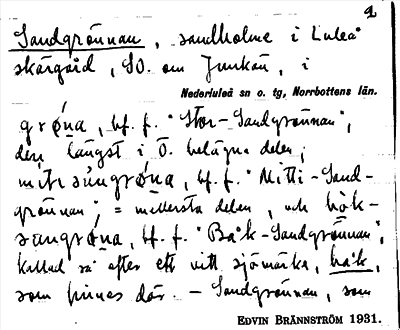 2
Sandgrönnan, sandholme i Luleå
skärgård, SO. om Junkön, i
Nederluleå sn o. tg, Norrbottens län.
grøna, bf. f. "Stor-Sandgrönnan",
den längst i Ö. belägna delen;
bf. f. "Mitti-Sand-
grönnan", = mellersta delen, och
bf. f. "Båk-Sandgrönnan",
kallad så efter ett vitt sjömärke, båk,
som finnes där. – Sandgrönnan, som
EDVIN BRÄNNSTRÖM 1931.